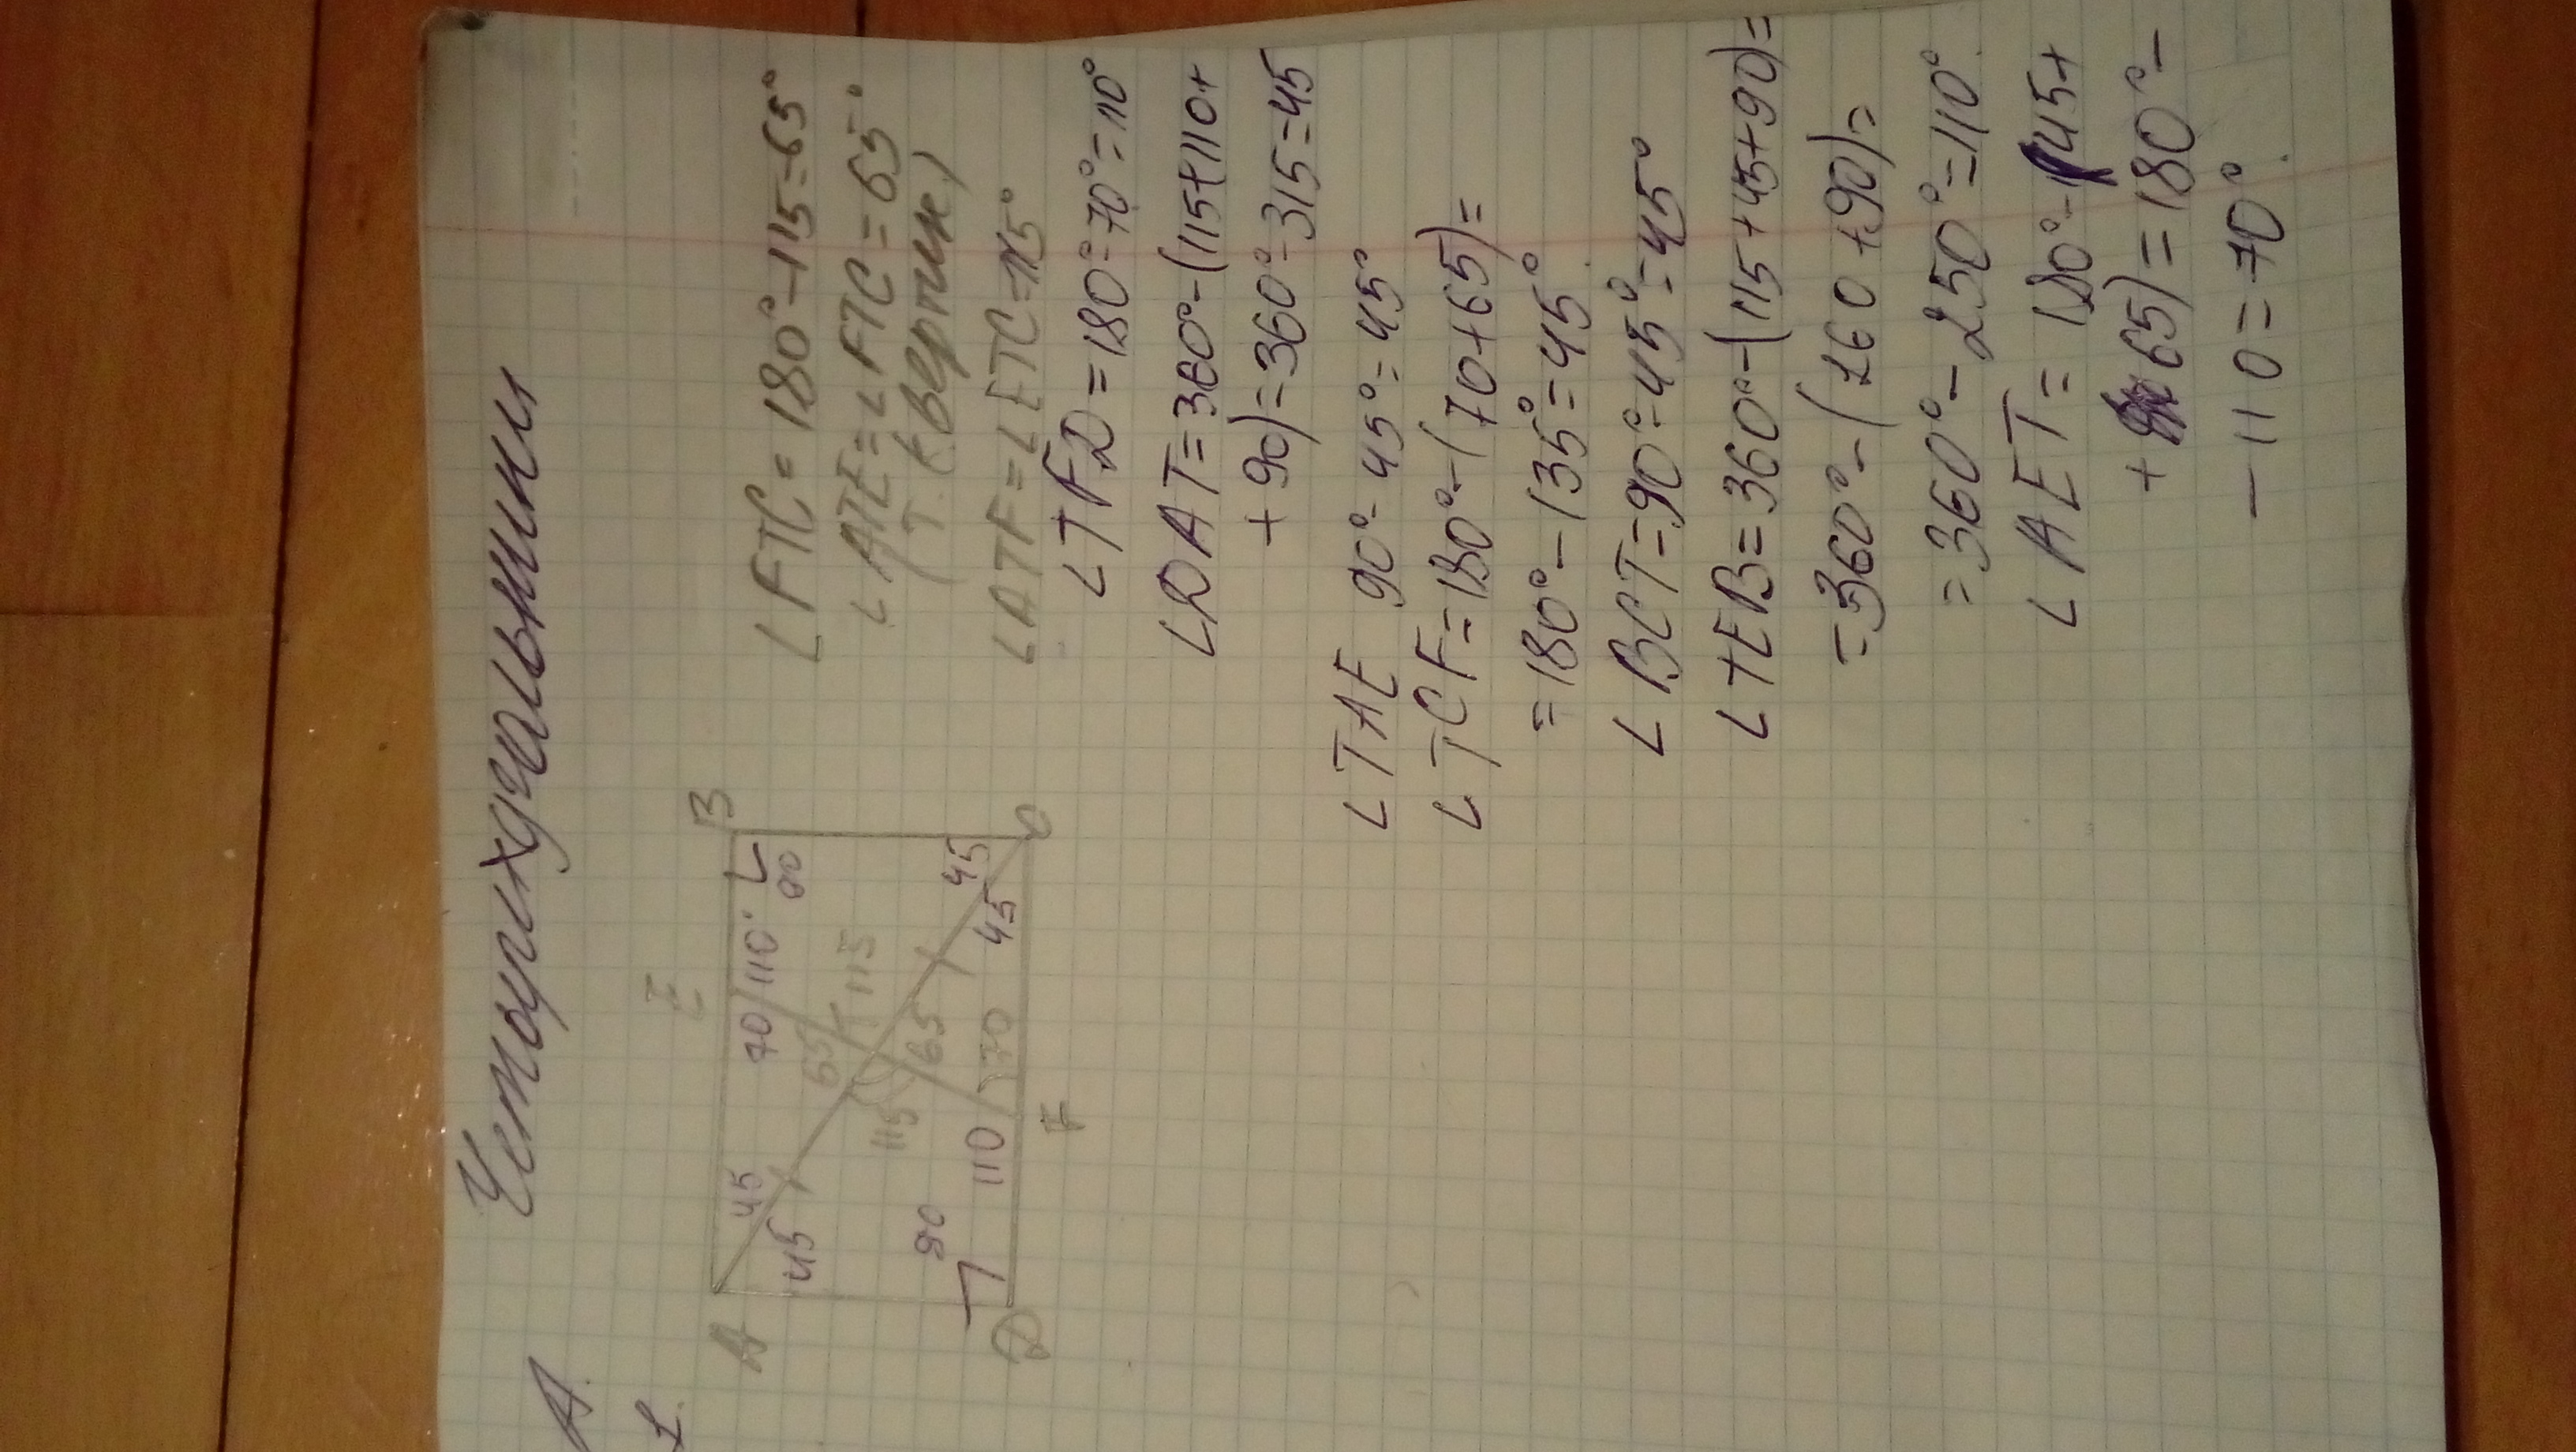 Четырехугольники
А.
1.
∠FTC = 180° - 115 = 65°
∠ATE = ∠FTC = 65°
(т.к вертик.)
∠ATF = ∠ETC = 115°
∠TFD = 180° - 70° = 110°
∠DAT = 360° - (115 + 110 +
+ 90) = 360° - 315 = 45
∠TAE 90° - 45° = 45°
∠TCF = 180° - (70 + 65) =
= 180° - 135° = 45°
∠BCT = 90° - 45° = 45°
∠TEB = 360° - (115 + 45 + 90) =
= 360° - (160 + 90) =
= 360° - 250° = 110°
∠AET = 180° - (45 +
+ 65) = 180° -
- 110 = 70°.
E
A
B
45
70
110°
90
45
65
115
115
65
45
90
110
70
45
D
F
C